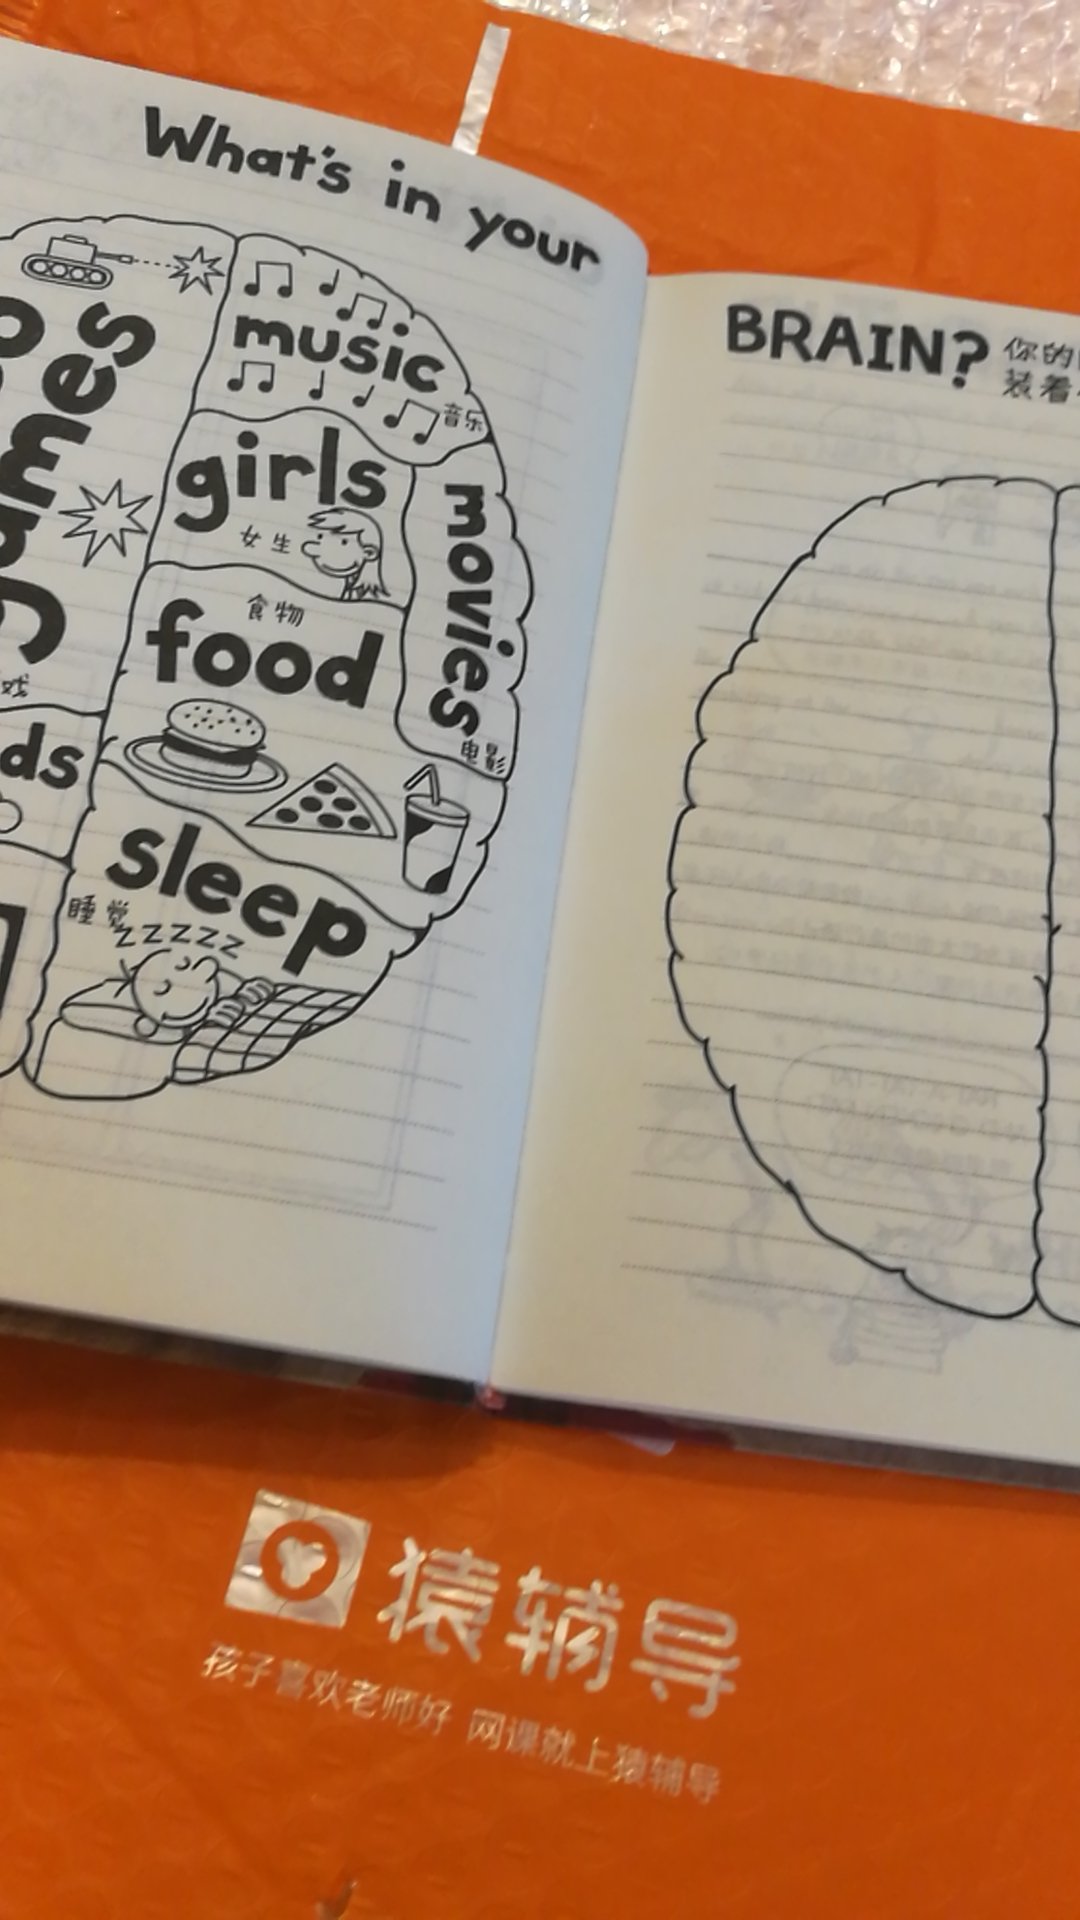 What's in your
music
音乐
girls
女生
movies
电影
food
食物
sleep
睡觉
zzzzz
BRAIN?
你的
装着
猿辅导
孩子喜欢老师好 网课就上猿辅导